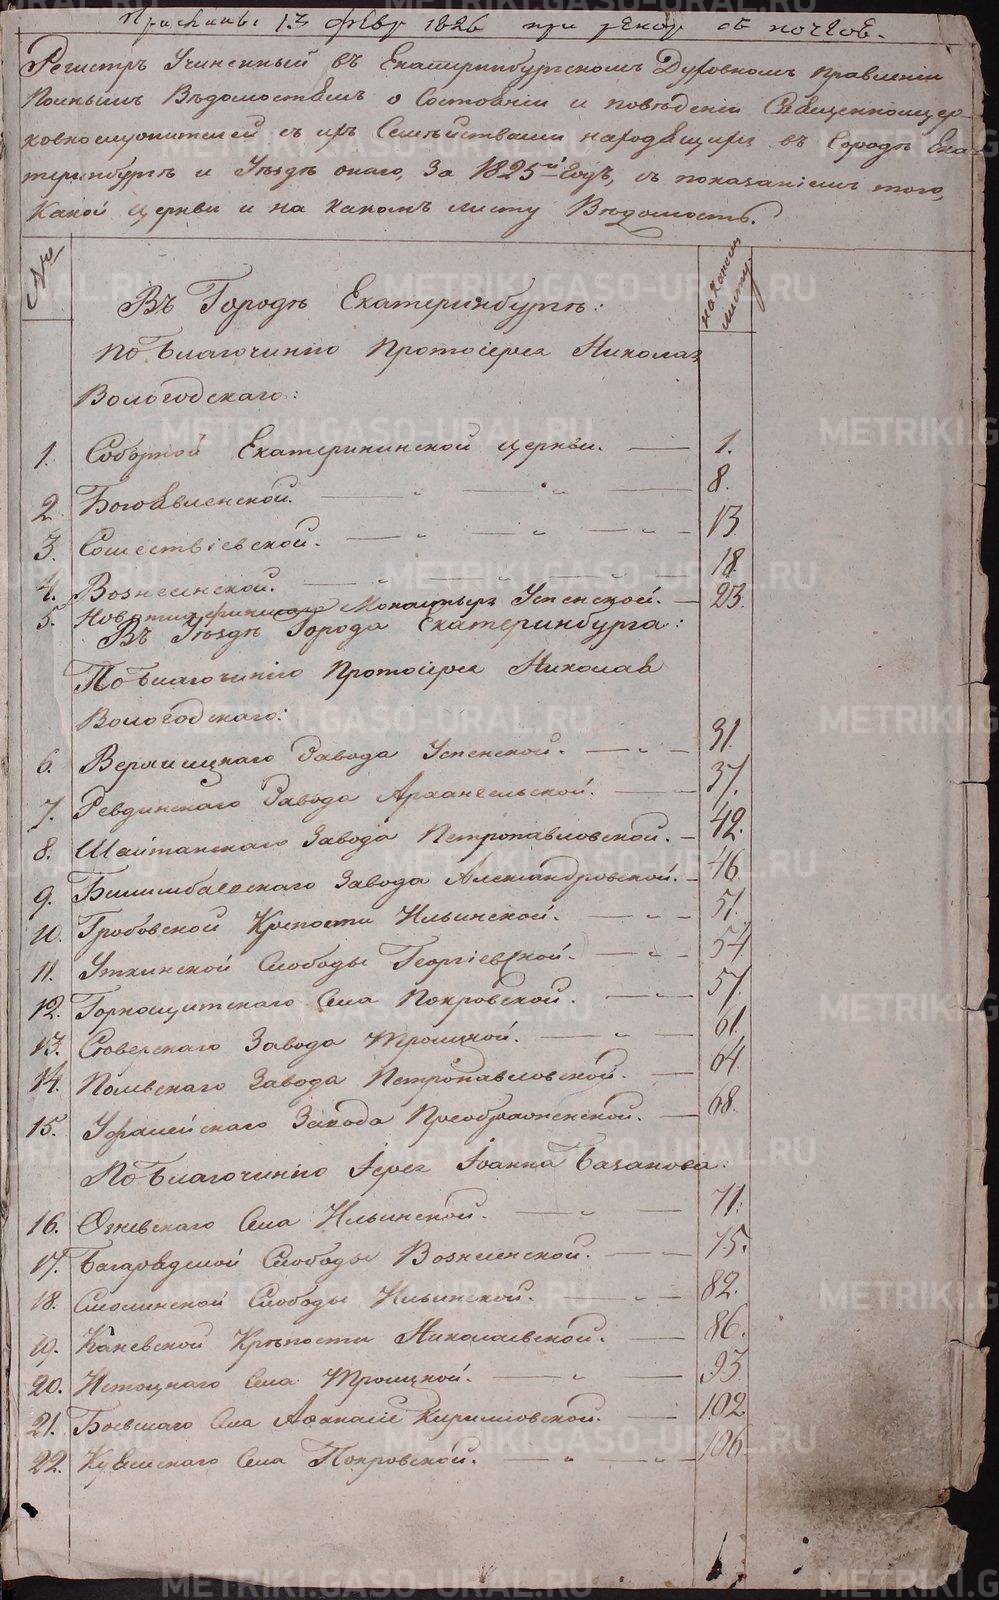 13 февр 1826 при рапор
Регистръ Учиненный въ Екатеринбургскомъ Духовномъ Правленіи
Поиннымъ Вѣдомостямъ о Состояніи и повѣденіи Священноцер-
ковнослужителей съ ихъ Семѣйствами находящихся въ Городѣ Ека-
теринбургѣ и Уѣздѣ онаго, За 1825й Годъ, съ показаніемъ того,
Какой церкви и на какомъ листу Вѣдомость.
на какомъ листу.
Въ Городѣ Екатеринбургѣ:
По Благочинію Протоіерея Николая
Вологодскаго:
1. Соборной Екатерининской церкви. 1.
2. Богоявленской. 8.
3. Сошествіевской. 13.
4. Вознесенской. 18.
5. Новотихвинскаго Монастыря Успенской. 23.
Въ Уѣздѣ Города Екатеринбурга:
По Благочинію Протоіерея Николая
Вологодскаго:
6. Верхисецкаго Завода Успенской. 31.
7. Ревдинскаго Завода Архангельской. 37.
8. Шайтанскаго Завода Петропавловской. 42.
9. Билимбаевскаго Завода Александровской. 46.
10. Гробовской Крѣпости Ильинской. 51.
11. Уткинской Слободы Георгіевской. 54.
12. Горнощитскаго Села Покровской. 57.
13. Сѣверскаго Завода Троицкой. 61.
14. Полевскаго Завода Петропавловской. 64.
15. Уфалейскаго Завода Преображенской. 68.
По Благочинію Іерея Іоанна Базанова:
16. Огневскаго Села Ильинской. 71.
17. Багаряцкой Слободы Вознесенской. 75.
18. Смолинской Слободы Ильинской. 82.
19. Каневской Крѣпости Николаевской. 86.
20. Истоцкаго Села Троицкой. 93.
21. Боевскаго Села Афанасіе Кирилловской. 102.
22. Куяшскаго Села Покровской. 106.
METRIKI.GASO-URAL.RU